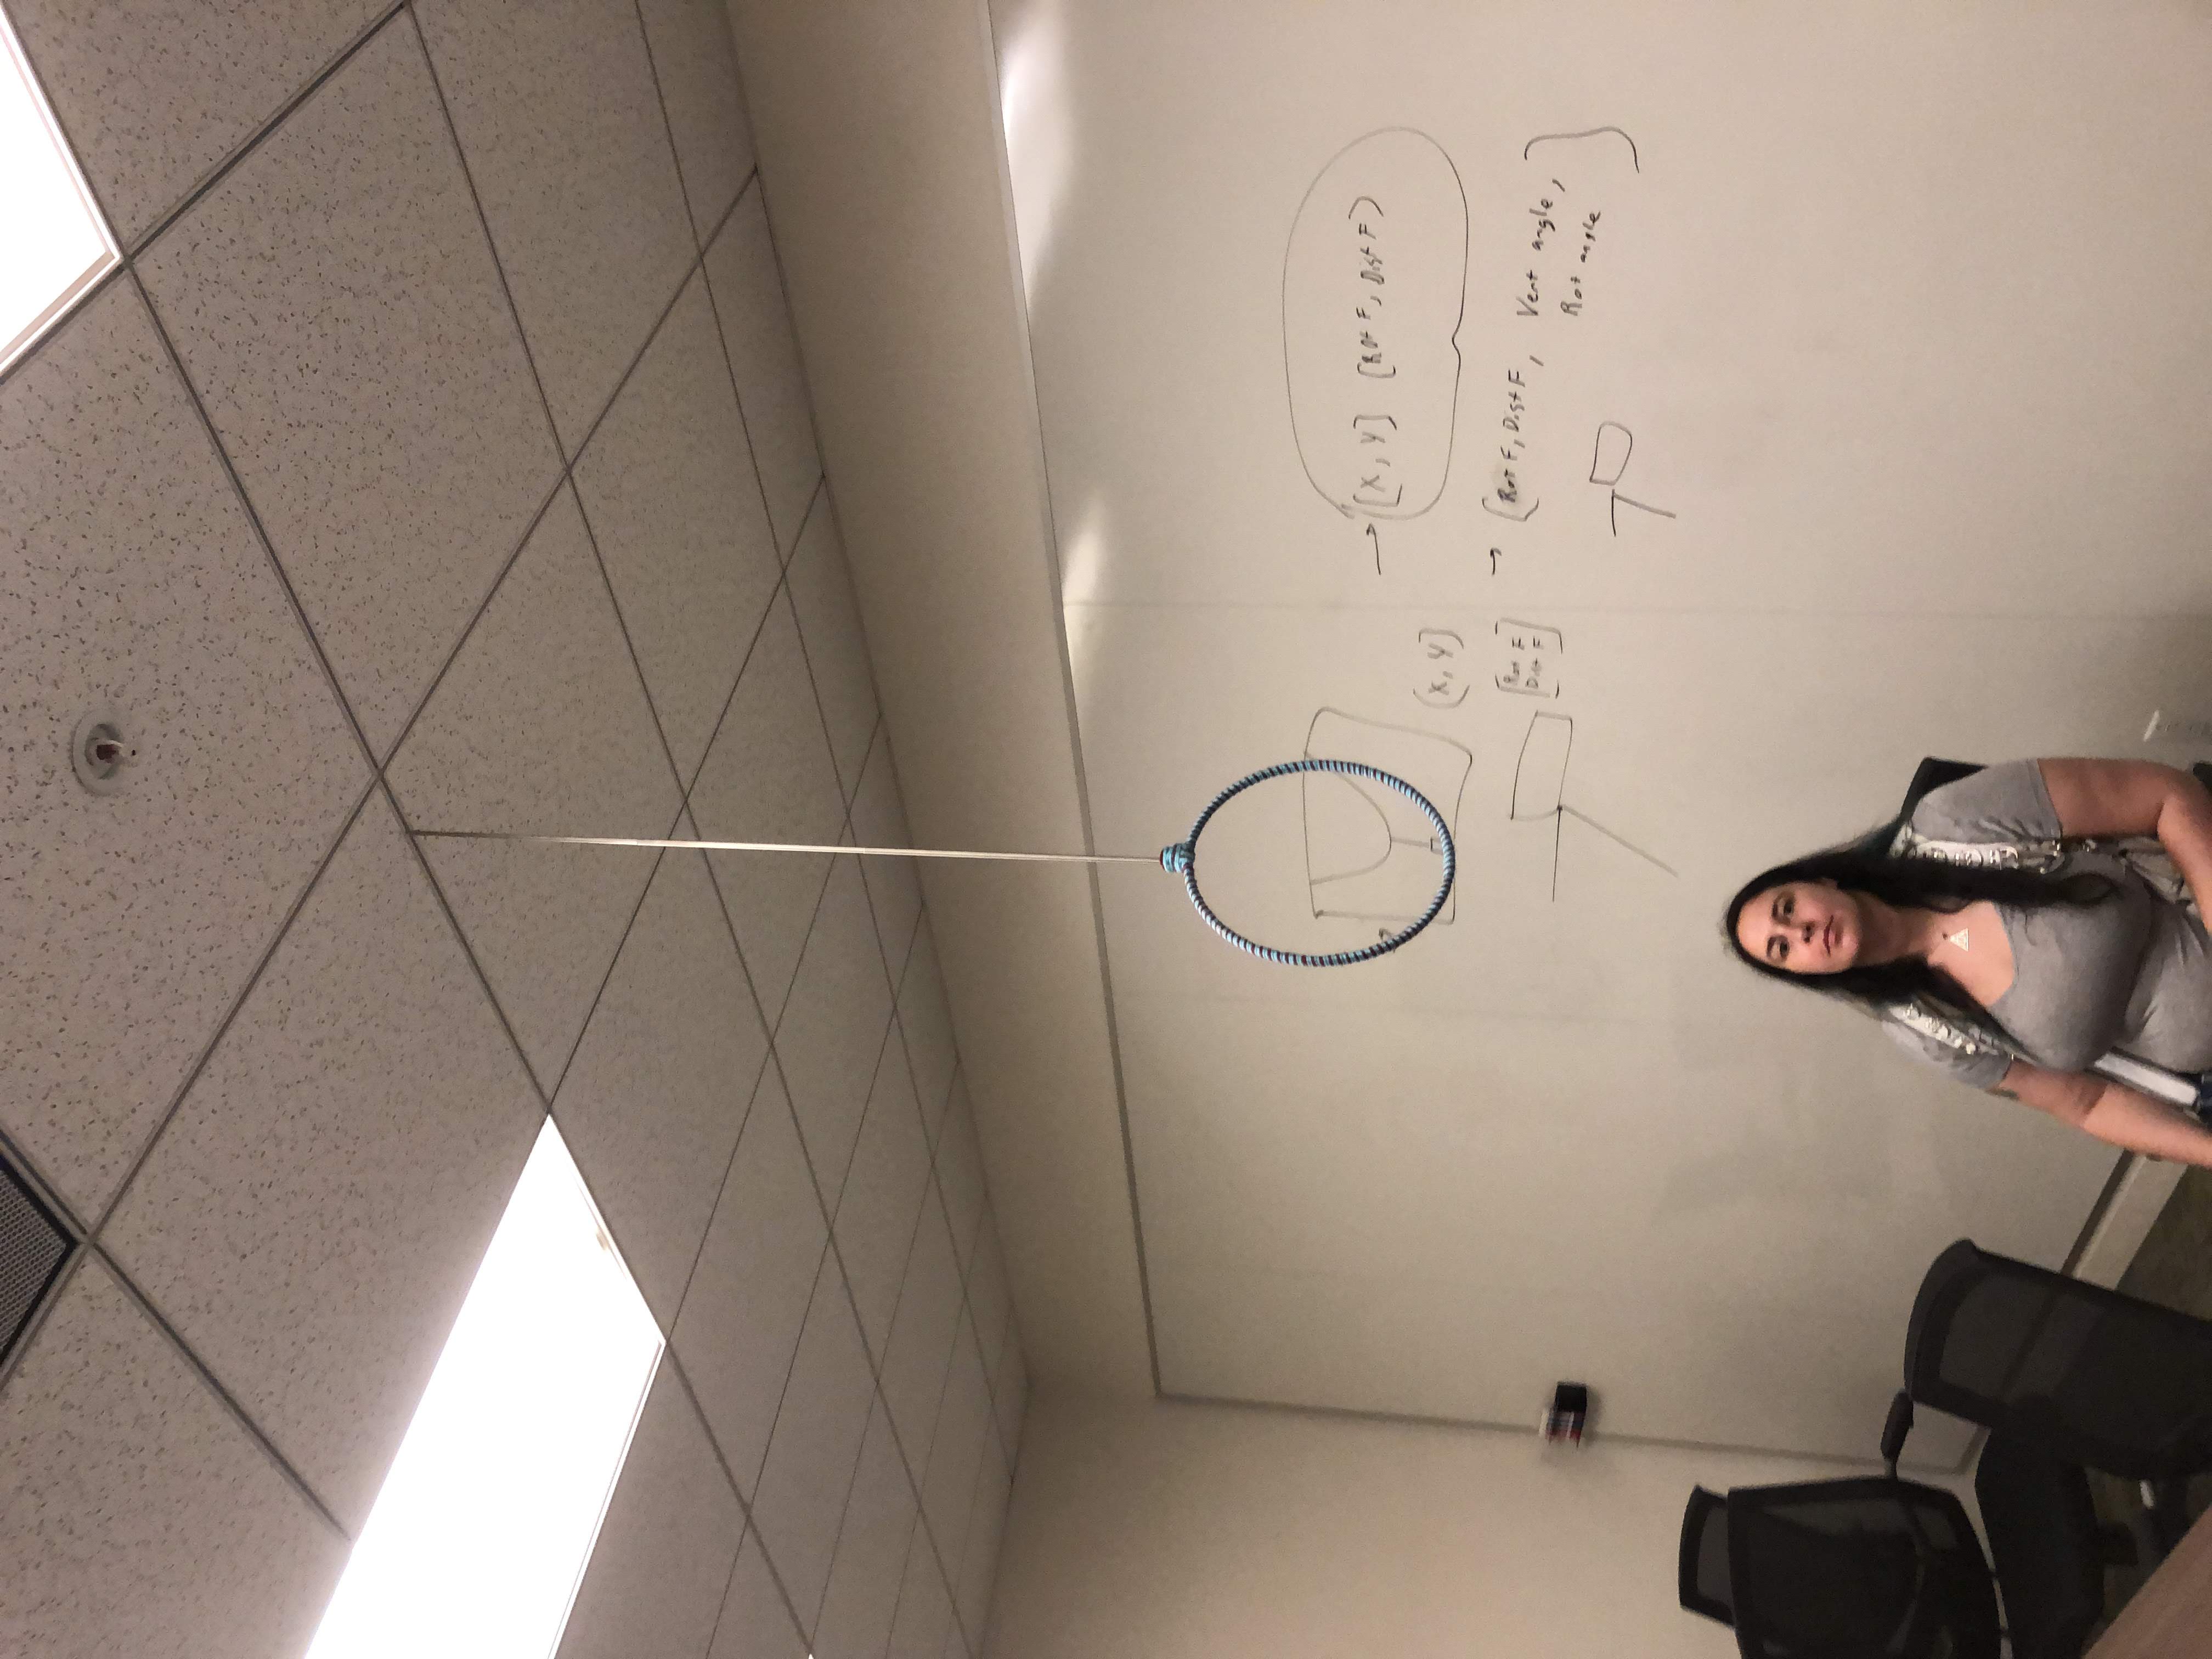 [X, Y] [Rot F, Dist F]
(X, Y)
[Rot F
Dist F]
[Rot F, Dist F, Vert angle,
Rot angle]